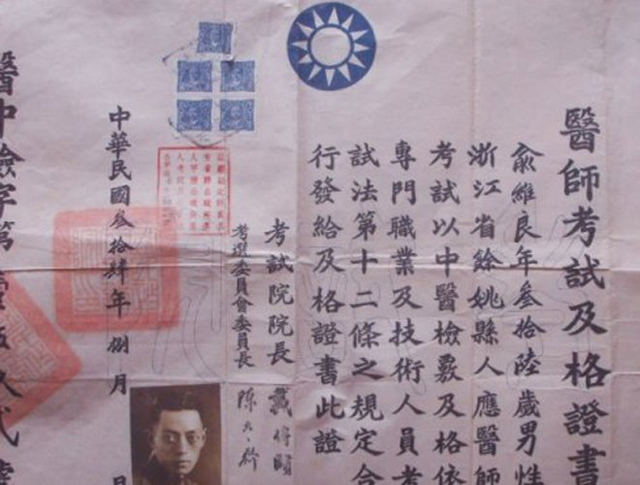 醫師考試及格證書
俞維良年叁拾陸歲男性
浙江省餘姚縣人應醫師
考試以中醫檢覈及格依
專門職業及技術人員考
試法第十二條之規定合
行發給及格證書此證
考試院院長 戴傳賢
考選委員會委員長 陳大齊
中華民國叁拾肆年捌月 日
醫中檢字第壹伍久貳